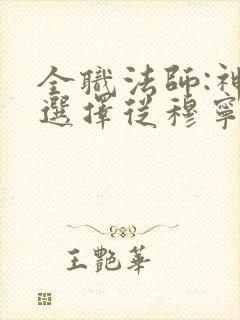 全職法師:神
選擇從穆寧
王艷華